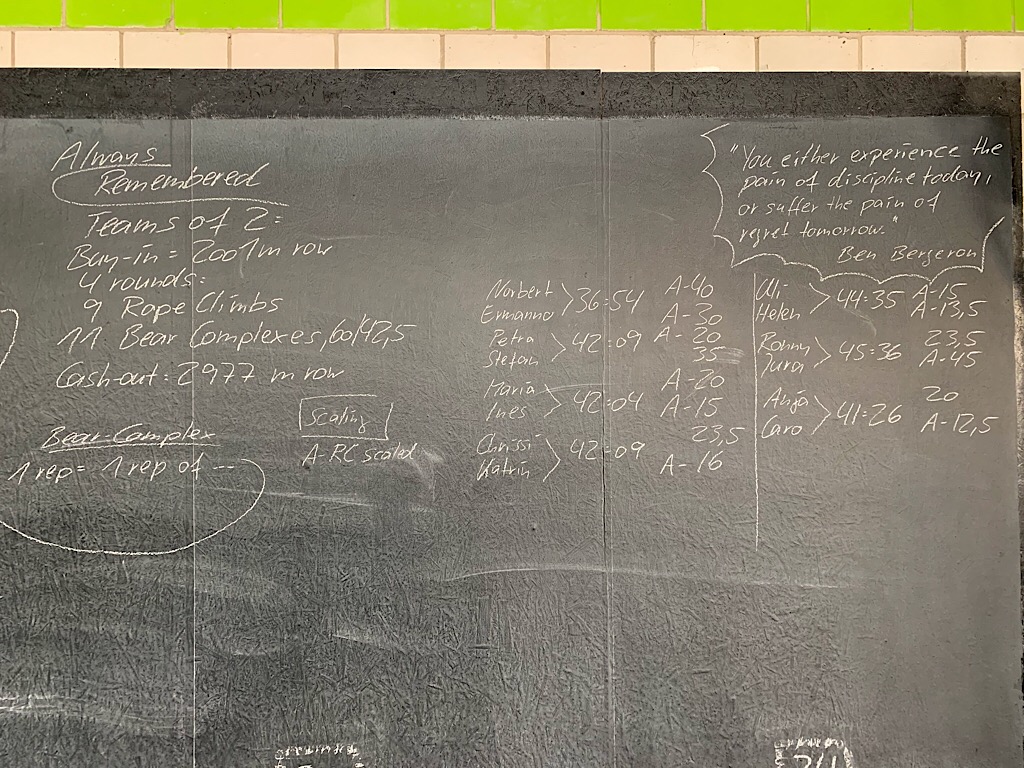 Always
Remembered
Teams of 2:
Buy-in = 2001m row
4 rounds:
9 Rope Climbs
11 Bear Complexes, 60/42,5
Cash-out: 2977 m row
Bear-Complex
1 rep = 1 rep of ...
Scaling
A-RC scaled
Norbert 36:54 A-40
Ermanno A-30
Petra 42:09 A-20
Stefan 35
Maria 42:04 A-20
Ines A-15
Chrissi 42:09 23,5
Katrin A-16
"You either experience the
pain of discipline today,
or suffer the pain of
regret tomorrow."
Ben Bergeron
Uli 44:35 A-15
Helen A-13,5
Ronny 45:36 23,5
Jura A-45
Anja 41:26 20
Caro A-12,5